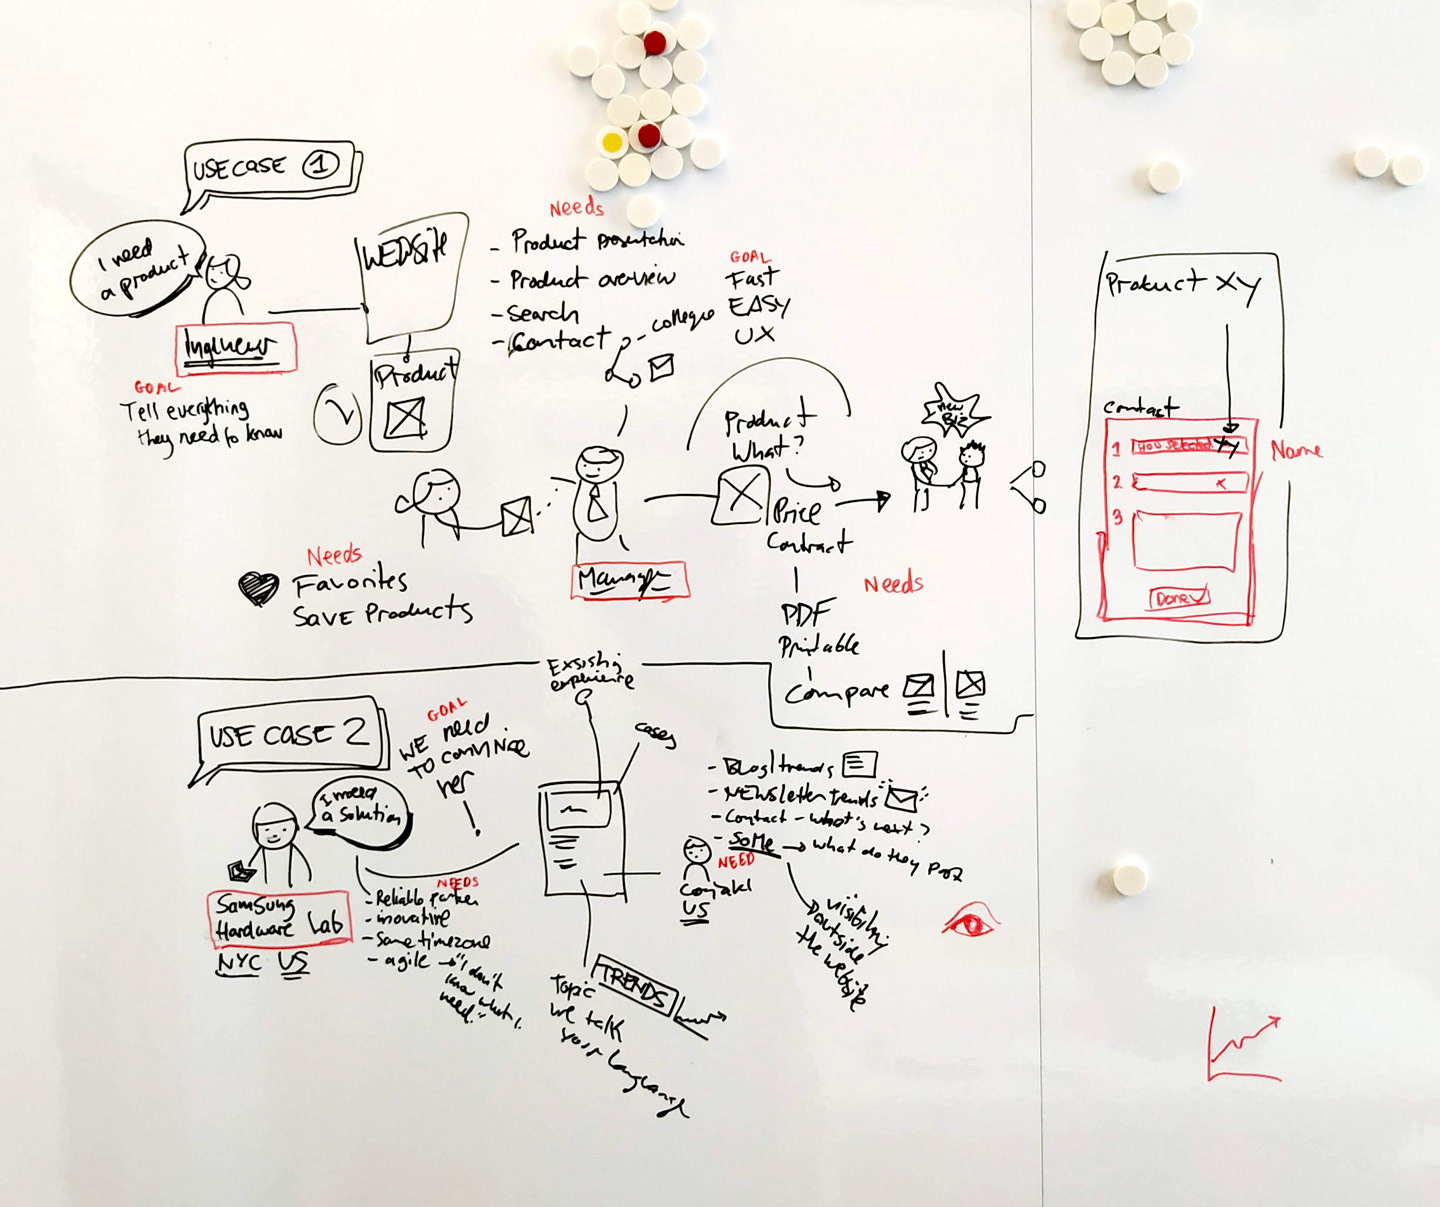 USE CASE 1
I need
a product
WEBSite
Product
GOAL
Tell everything
they need to know
Needs
- Product presentation
- Product overview
- Search
- Contact
GOAL
Fast
EASY
UX
Product
What?
Price
Contract
PDF
Printable
Compare
Needs
new
Biz
Manager
Needs
Favorites
Save Products
Product XY
Contact
1 you selected XY
2
3
Done
Name
USE CASE 2
I need
a Solution
SamSung
Hardware Lab
NYC US
GOAL
WE need
TO convince
her
!
NEEDS
- Reliable partner
- inovative
- Same timezone
- agile → "I don't
know what I
need."
experience
cases
- Blog/trends
- NEWsletter trends
- Contact - what's next?
- SoMe → what do they
visibility
outside
the website
NEED
US
TRENDS
Topic
we talk
your language